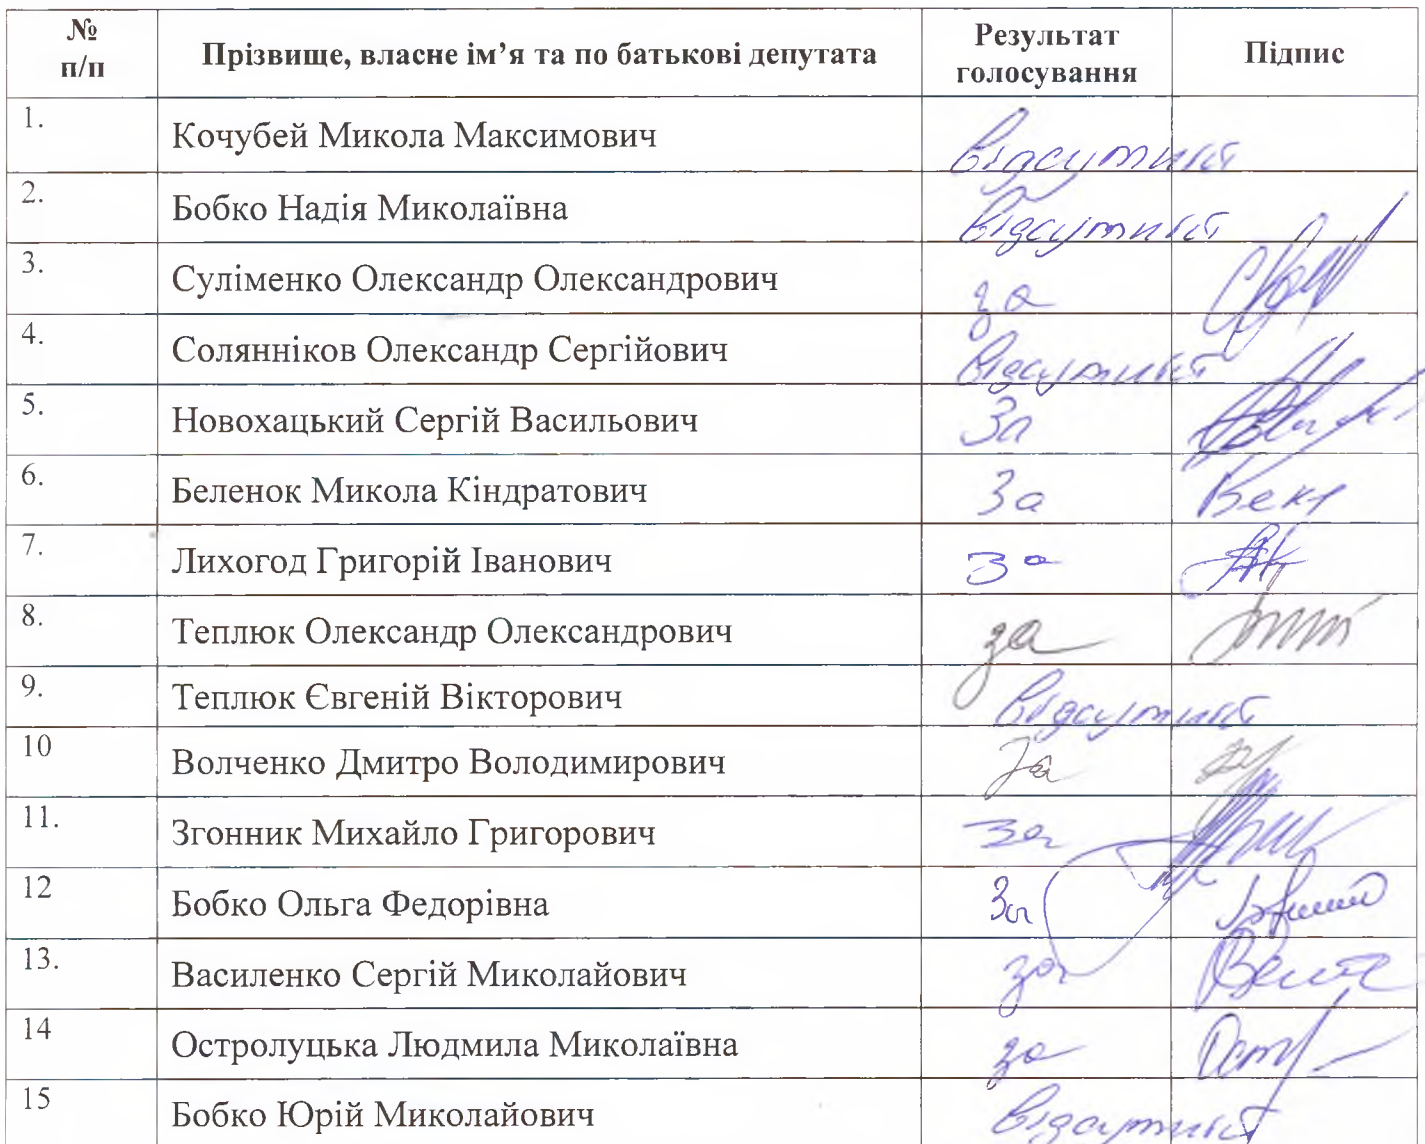 № п/п Прізвище, власне ім’я та по батькові депутата Результат голосування Підпис
1. Кочубей Микола Максимович відсутній
2. Бобко Надія Миколаївна відсутній
3. Суліменко Олександр Олександрович за
4. Солянніков Олександр Сергійович відсутній
5. Новохацький Сергій Васильович За
6. Беленок Микола Кіндратович За
7. Лихогод Григорій Іванович за
8. Теплюк Олександр Олександрович за
9. Теплюк Євгеній Вікторович відсутній
10 Волченко Дмитро Володимирович За
11. Згонник Михайло Григорович за
12 Бобко Ольга Федорівна За
13. Василенко Сергій Миколайович за
14 Остролуцька Людмила Миколаївна за
15 Бобко Юрій Миколайович відсутній